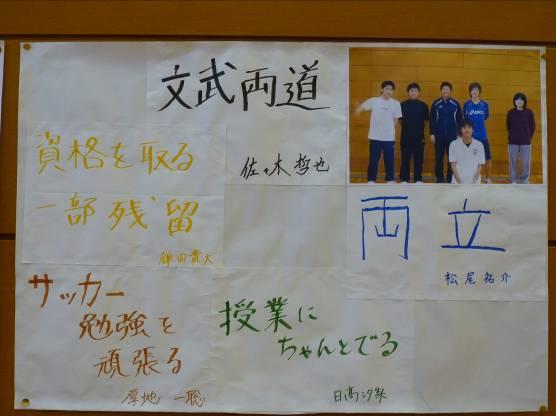 文武両道
佐々木哲也
資格を取る
一部残留
鎌田貴大
両立
松尾祐介
サッカー
勉強を
頑張る
厚地一聡
授業に
ちゃんとでる